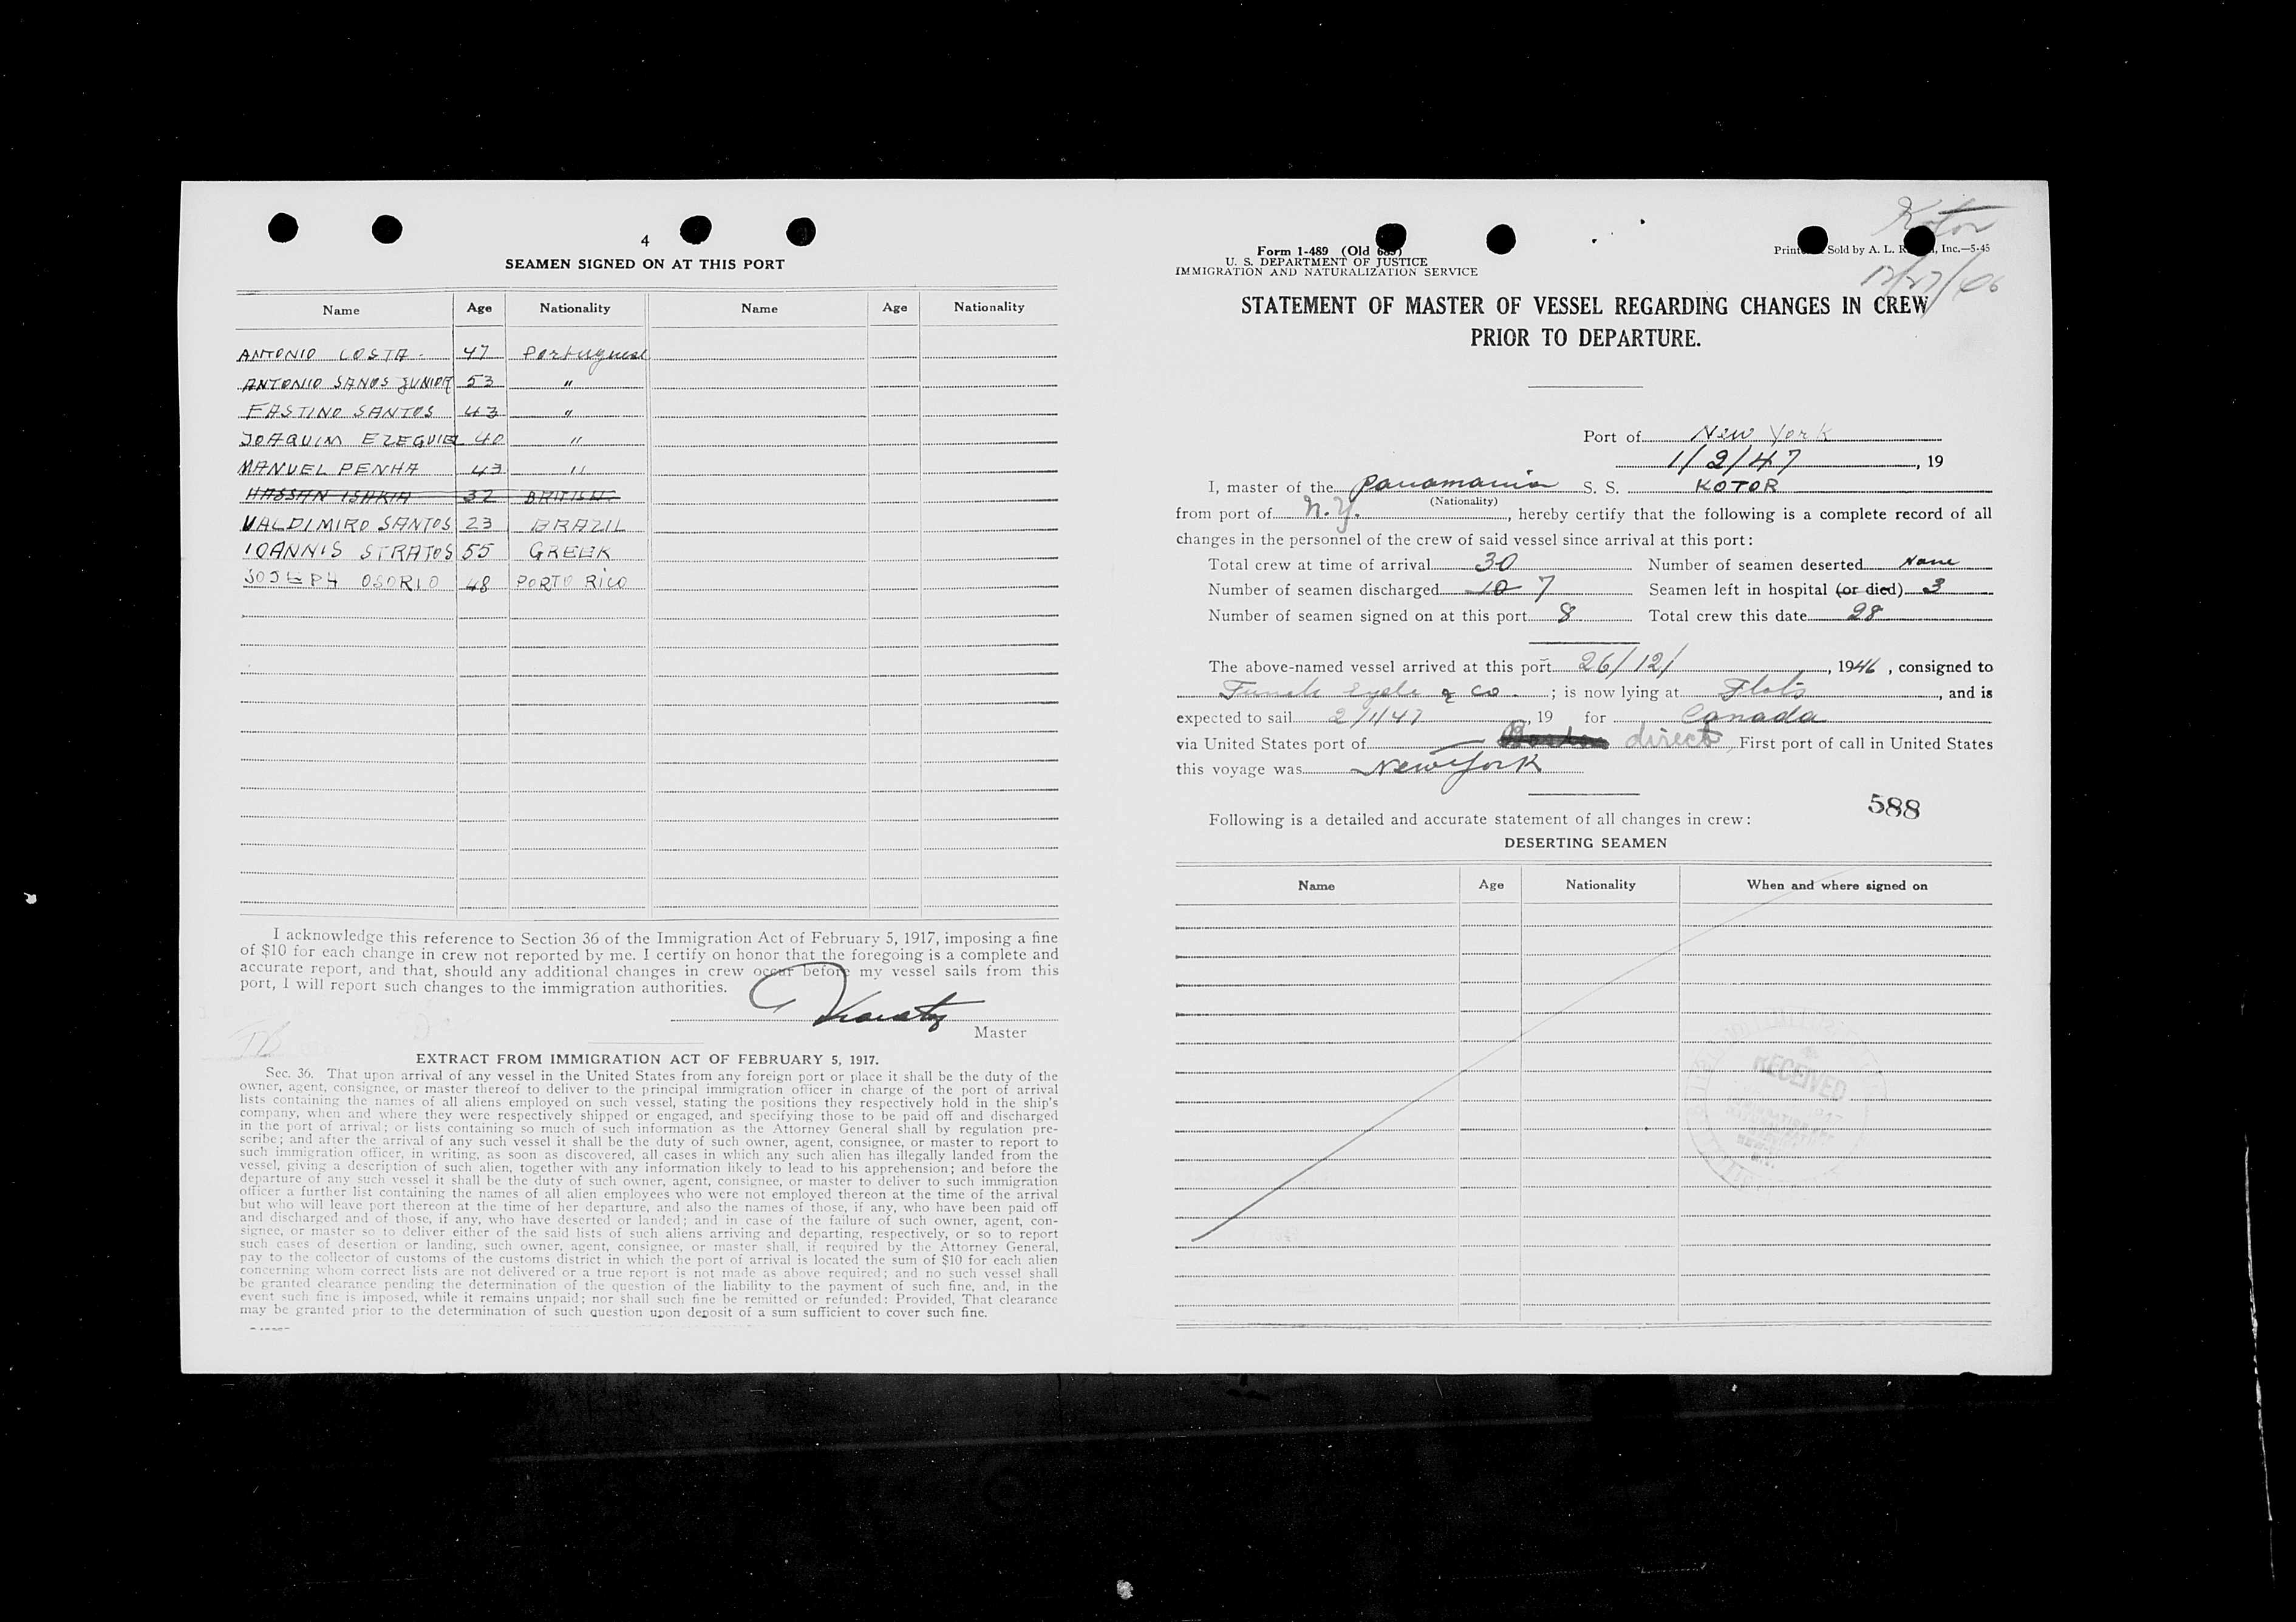 4
SEAMEN SIGNED ON AT THIS PORT
Name Age Nationality Name Age Nationality
ANTONIO COSTA. 47 Portuguese
ANTONIO SANOS JUNIOR 53 "
FASTINO SANTOS 43 "
JOAQUIM EZEGUIEL 40 "
MANUEL PENHA 43 "
HASSAN ISHKIA 32 BRITISH
VALDIMIRO SANTOS 23 BRAZIL
IOANNIS STRATOS 55 GREEK
JOSEPH OSORIO 48 PORTO RICO
I acknowledge this reference to Section 36 of the Immigration Act of February 5, 1917, imposing a fine
of $10 for each change in crew not reported by me. I certify on honor that the foregoing is a complete and
accurate report, and that, should any additional changes in crew occur before my vessel sails from this
port, I will report such changes to the immigration authorities.
Master
EXTRACT FROM IMMIGRATION ACT OF FEBRUARY 5, 1917.
Sec. 36. That upon arrival of any vessel in the United States from any foreign port or place it shall be the duty of the
owner, agent, consignee, or master thereof to deliver to the principal immigration officer in charge of the port of arrival
lists containing the names of all aliens employed on such vessel, stating the positions they respectively hold in the ship's
company, when and where they were respectively shipped or engaged, and specifying those to be paid off and discharged
in the port of arrival; or lists containing so much of such information as the Attorney General shall by regulation pre-
scribe; and after the arrival of any such vessel it shall be the duty of such owner, agent, consignee, or master to report to
such immigration officer, in writing, as soon as discovered, all cases in which any such alien has illegally landed from the
vessel, giving a description of such alien, together with any information likely to lead to his apprehension; and before the
departure of any such vessel it shall be the duty of such owner, agent, consignee, or master to deliver to such immigration
officer a further list containing the names of all alien employees who were not employed thereon at the time of the arrival
but who will leave port thereon at the time of her departure, and also the names of those, if any, who have been paid off
and discharged and of those, if any, who have deserted or landed; and in case of the failure of such owner, agent, con-
signee, or master so to deliver either of the said lists of such aliens arriving and departing, respectively, or so to report
such cases of desertion or landing, such owner, agent, consignee, or master shall, if required by the Attorney General,
pay to the collector of customs of the customs district in which the port of arrival is located the sum of $10 for each alien
concerning whom correct lists are not delivered or a true report is not made as above required; and no such vessel shall
be granted clearance pending the determination of the question of the liability to the payment of such fine, and, in the
event such fine is imposed, while it remains unpaid; nor shall such fine be remitted or refunded: Provided, That clearance
may be granted prior to the determination of such question upon deposit of a sum sufficient to cover such fine.
Kotor
12/27/46
Form 1-489 (Old 689)
U. S. DEPARTMENT OF JUSTICE
IMMIGRATION AND NATURALIZATION SERVICE
Sold by A. L. Inc.—5-45
STATEMENT OF MASTER OF VESSEL REGARDING CHANGES IN CREW
PRIOR TO DEPARTURE.
Port of New York
1/2/47, 19
I, master of the panamanian S. S. KOTOR
(Nationality)
from port of N.Y., hereby certify that the following is a complete record of all
changes in the personnel of the crew of said vessel since arrival at this port:
Total crew at time of arrival 30 Number of seamen deserted None
Number of seamen discharged 10 7 Seamen left in hospital (or died) 3
Number of seamen signed on at this port 8 Total crew this date 28
The above-named vessel arrived at this port 26/12/, 1946, consigned to
& co.; is now lying at Flats, and is
expected to sail 2/1/47, 19 for Canada
via United States port of Boston direct, First port of call in United States
this voyage was New York
588
Following is a detailed and accurate statement of all changes in crew:
DESERTING SEAMEN
Name Age Nationality When and where signed on
RECEIVED